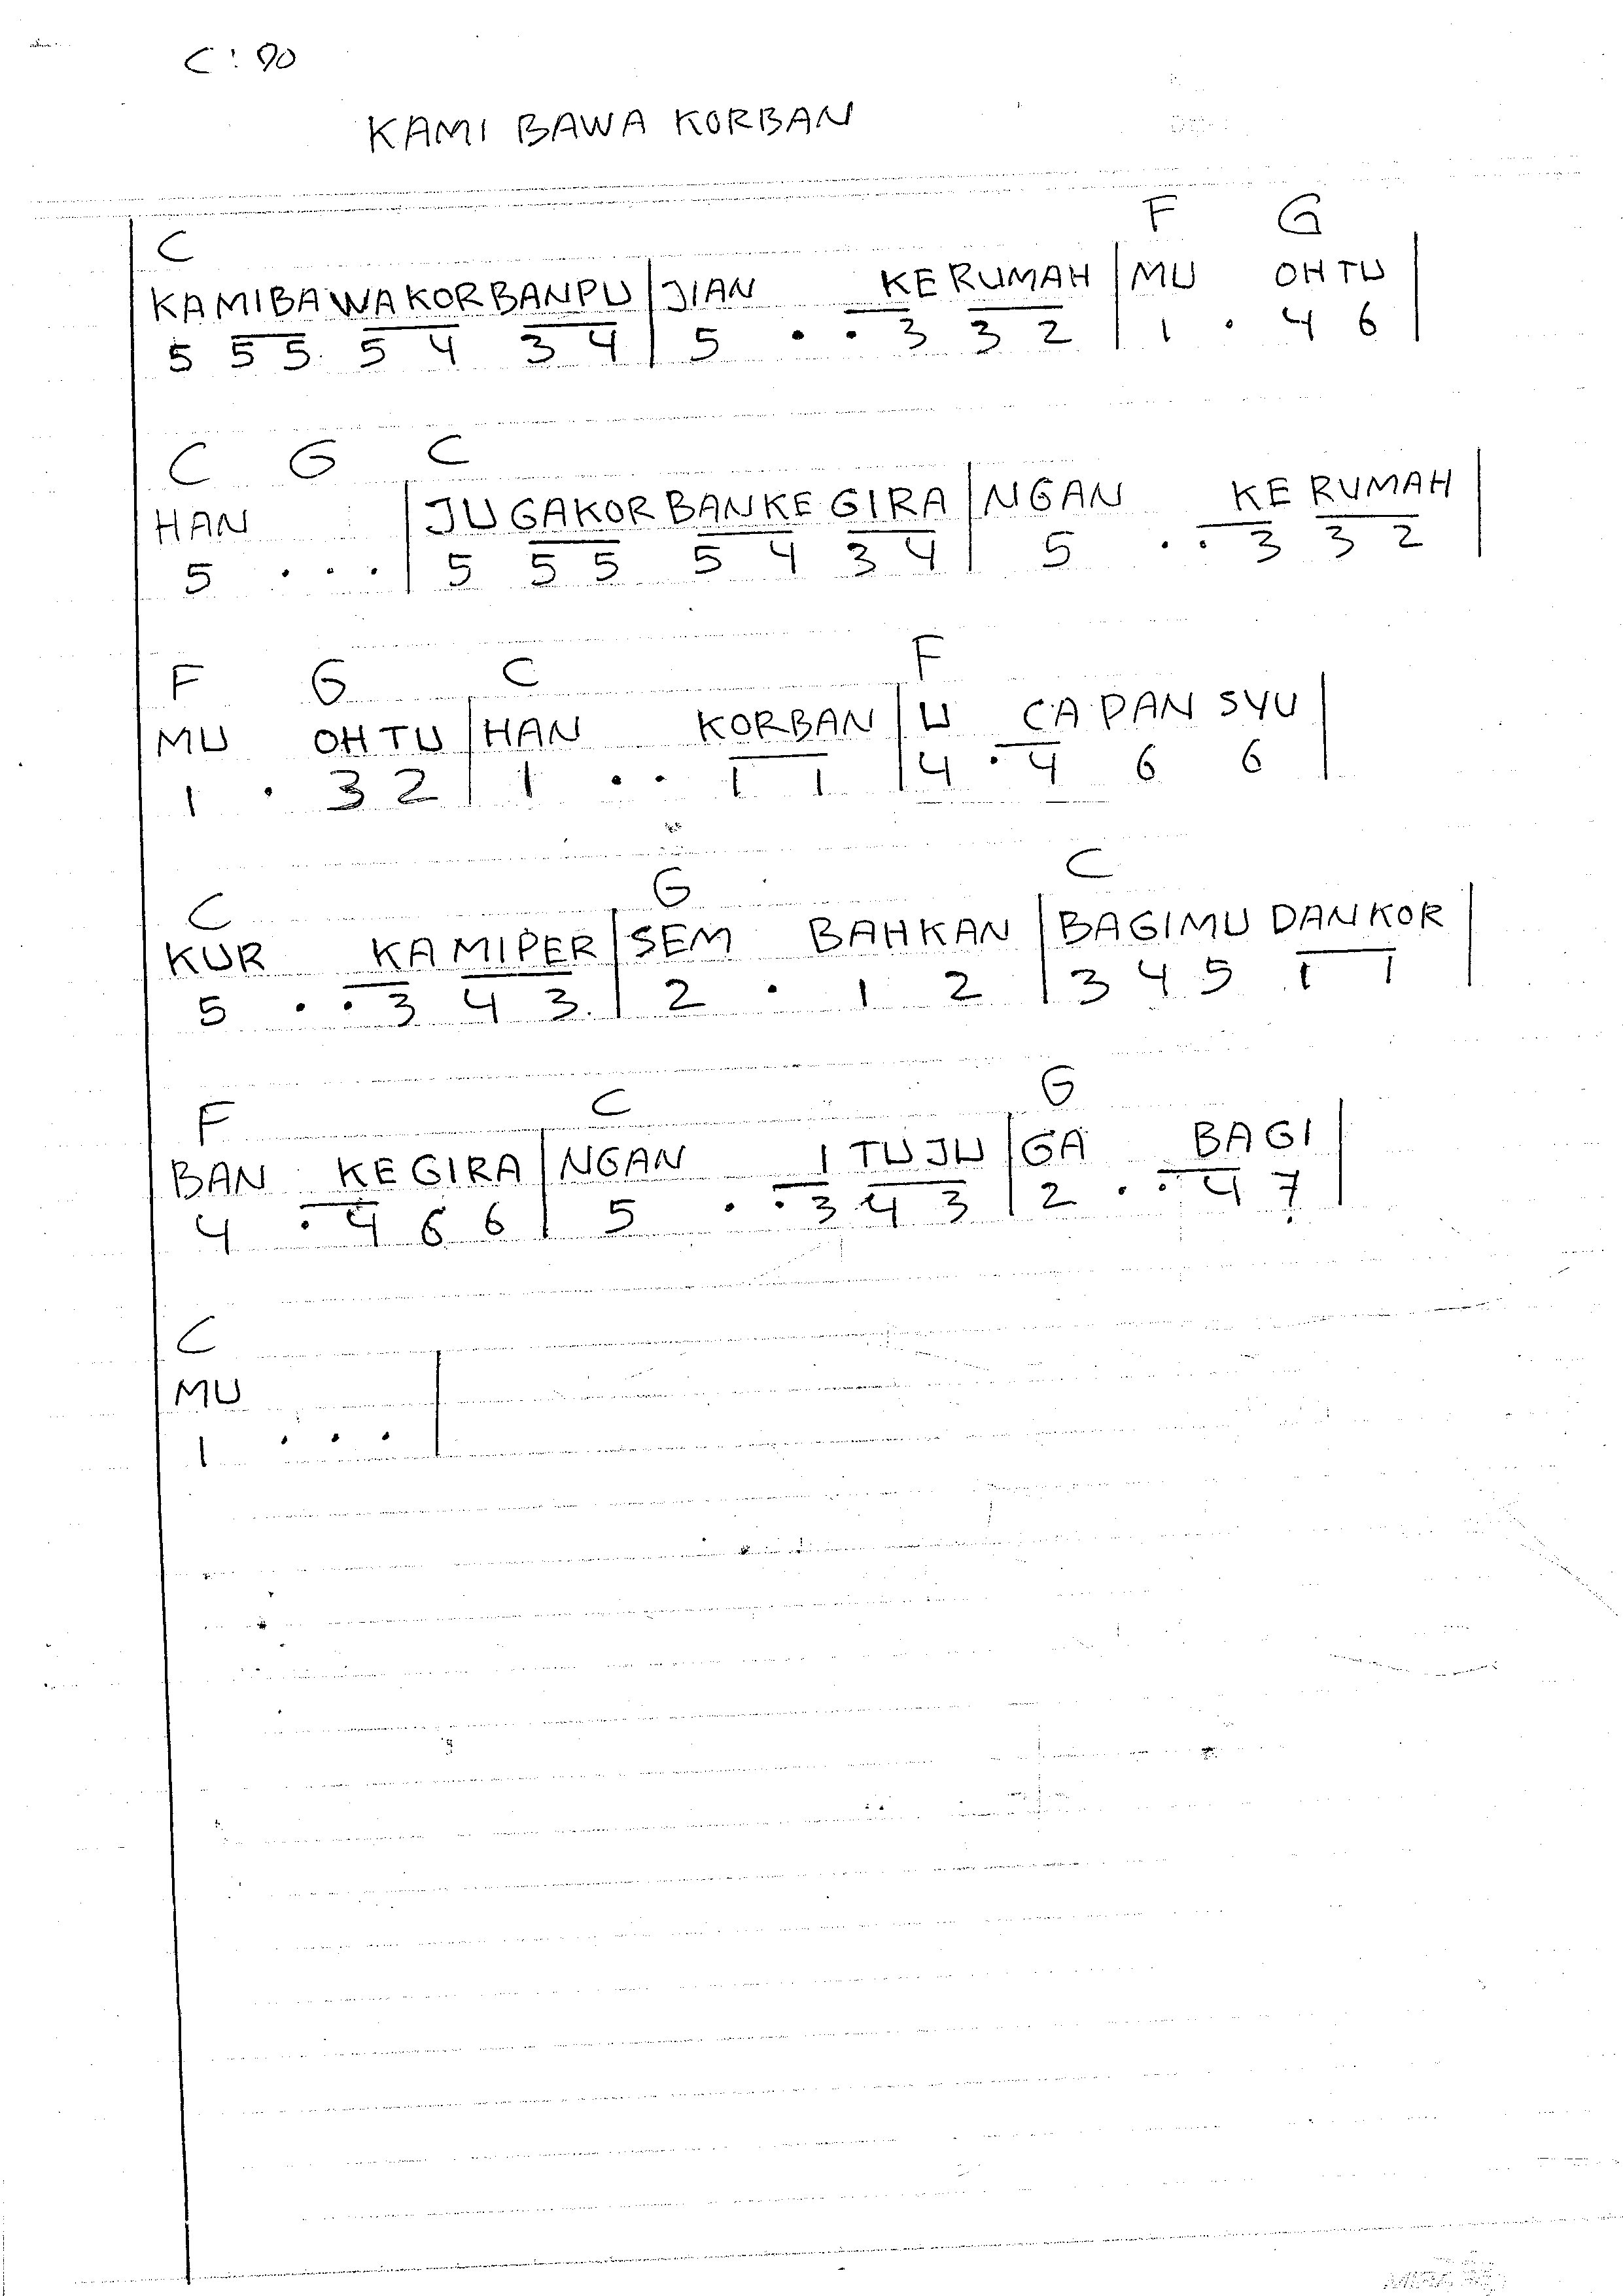 C : 90
KAMI BAWA KORBAN
C F G
KAMIBAWAKORBANPU/JIAN KERUMAH/MU OHTU|
5 5 5 5 4 3 4 | 5 • • 3 3 2 | 1 • 4 6 |
C G C
HAN |JUGAKORBANKEGIRA/NGAN KERUMAH|
5 • • • | 5 5 5 5 4 3 4 | 5 • • 3 3 2 |
F G C F
MU OHTU/HAN KORBAN/U CAPANSYU|
1 • 3 2 | 1 • • 1 1 | 4 • 4 6 6 |
C G C
KUR KAMIPER/SEM BAHKAN/BAGIMU DANKOR|
5 • • 3 4 3 | 2 • 1 2 | 3 4 5 1 1 |
F C G
BAN KEGIRA/NGAN ITUJU/GA BAGI|
4 • 4 6 6 | 5 • • 3 4 3 | 2 • • 4 7̣ |
C
MU |
1 • • • |